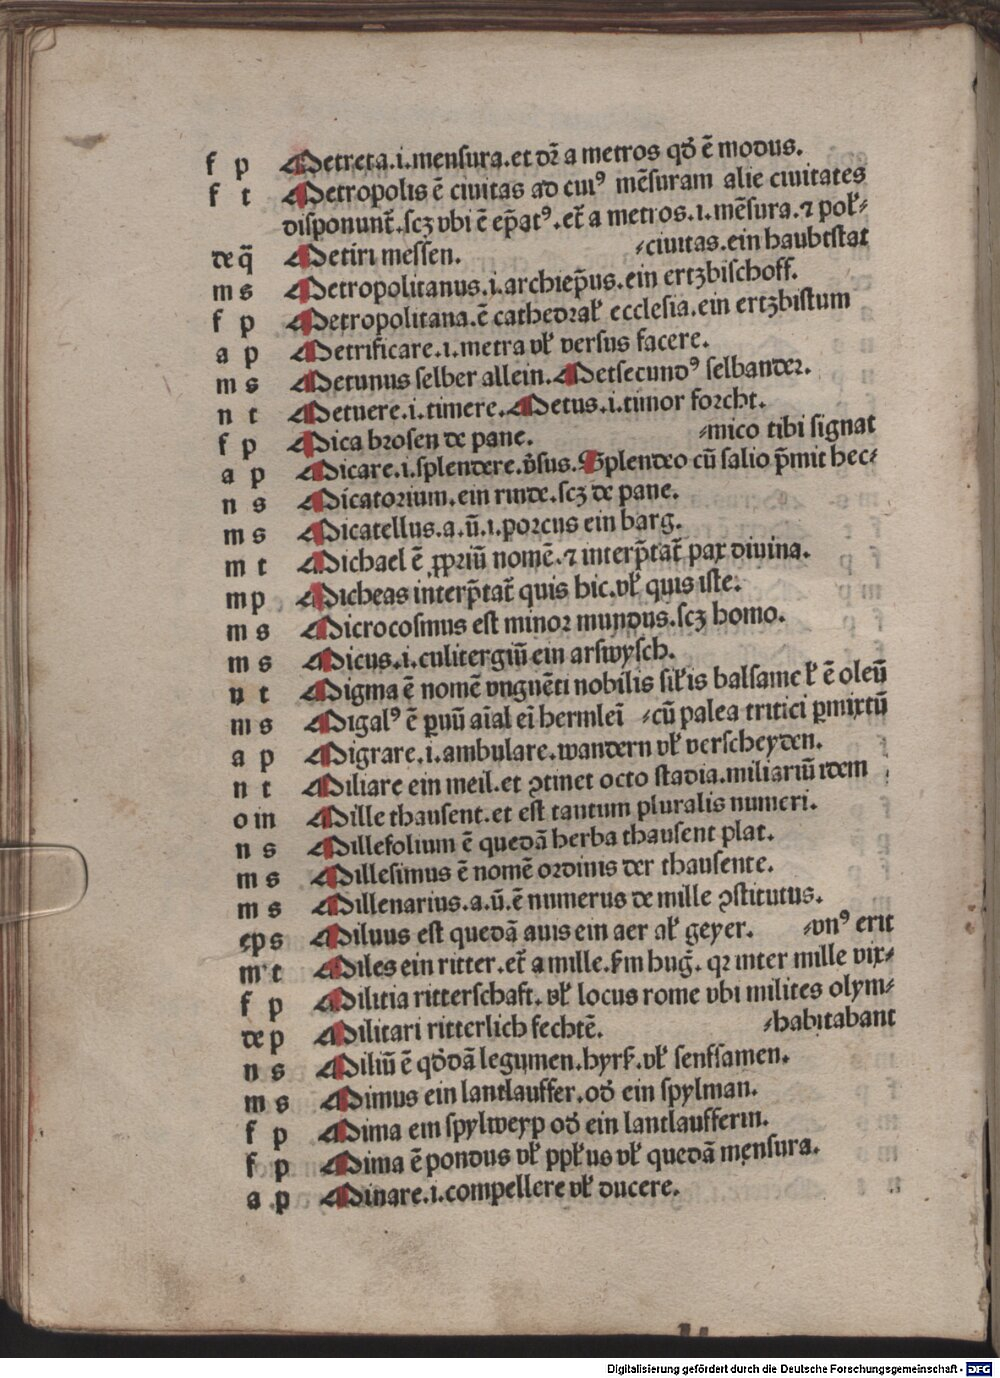 f p Metreta.i.mensura.et dr̄ a metros qd̓ ē modus.
f t Metropolis ē ciuitas ad cuiꝰ mēsuram alie ciuitates
disponunt̄.scꝫ vbi ē ep̄atꝰ.et̄ a metros.i.mēsura.⁊ polꝉ⸗
de q̄ Metiri messen. ⸗ciuitas.ein haubtstat
m s Metropolitanus.i.archiep̄us.ein ertzbischoff.
f p Metropolitana.ē cathedraꝉ ecclesia.ein ertzbistum
a p Metrificare.i.metra vꝉ versus facere.
m s Metunus selber allein.Metsecundꝰ selbander.
n t Metuere.i.timere.Metus.i.timor forcht.
f p Mica brosen de pane. ⸗mico tibi signat
a p Micare.i.splendere.v̓sus.Splendeo cū salio p̄mit hec⸗
n s Micatorium.ein rinde.scꝫ de pane.
m s Micatellus.a.ū.i.porcus ein barg.
m t Michael ē ꝓpriū nomē.⁊ interp̄tat̄ pax diuina.
m p Micheas interp̄tat̄ quis hic.vꝉ quis iste.
m s Microcosmus est minor mundus.scꝫ homo.
m s Micus.i.culitergiū ein arswysch.
n t Migma ē nomē vnguēti nobilis siꝉis balsame ꝉ ē oleū
m s Migalꝰ ē ꝑuū aīal eī hermleī ⸗cū palea tritici ꝑmixtū
a p Migrare.i.ambulare.wandern vꝉ verscheyden.
n t Miliare ein meil.et ꝯtinet octo stadia.miliariū idem
o in Mille thausent.et est tantum pluralis numeri.
n s Millefolium ē quedā herba thausent plat.
m s Millesimus ē nomē ordinis der thausente.
m s Millenarius.a.ū.ē numerus de mille ꝯstitutus.
ep s Miluus est quedā auis ein aer aꝉ geyer. ⸗vnꝰ erit
m t Miles ein ritter.et̄ a mille.ẜm huḡ.qꝛ inter mille vix⸗
f p Militia ritterschaft.vꝉ locus rome vbi milites olym⸗
de p Militari ritterlich fechtē. ⸗habitabant
n s Miliū ē qd̓dā legumen.hyrß.vꝉ senfsamen.
m s Mimus ein lantlauffer.od̓ ein spylman.
f p Mima ein spylweyp od̓ ein lantlaufferin.
f p Mima ē pondus vꝉ ppꝉus vꝉ quedā mensura.
a p Minare.i.compellere vꝉ ducere.
Digitalisierung gefördert durch die Deutsche Forschungsgemeinschaft - DFG